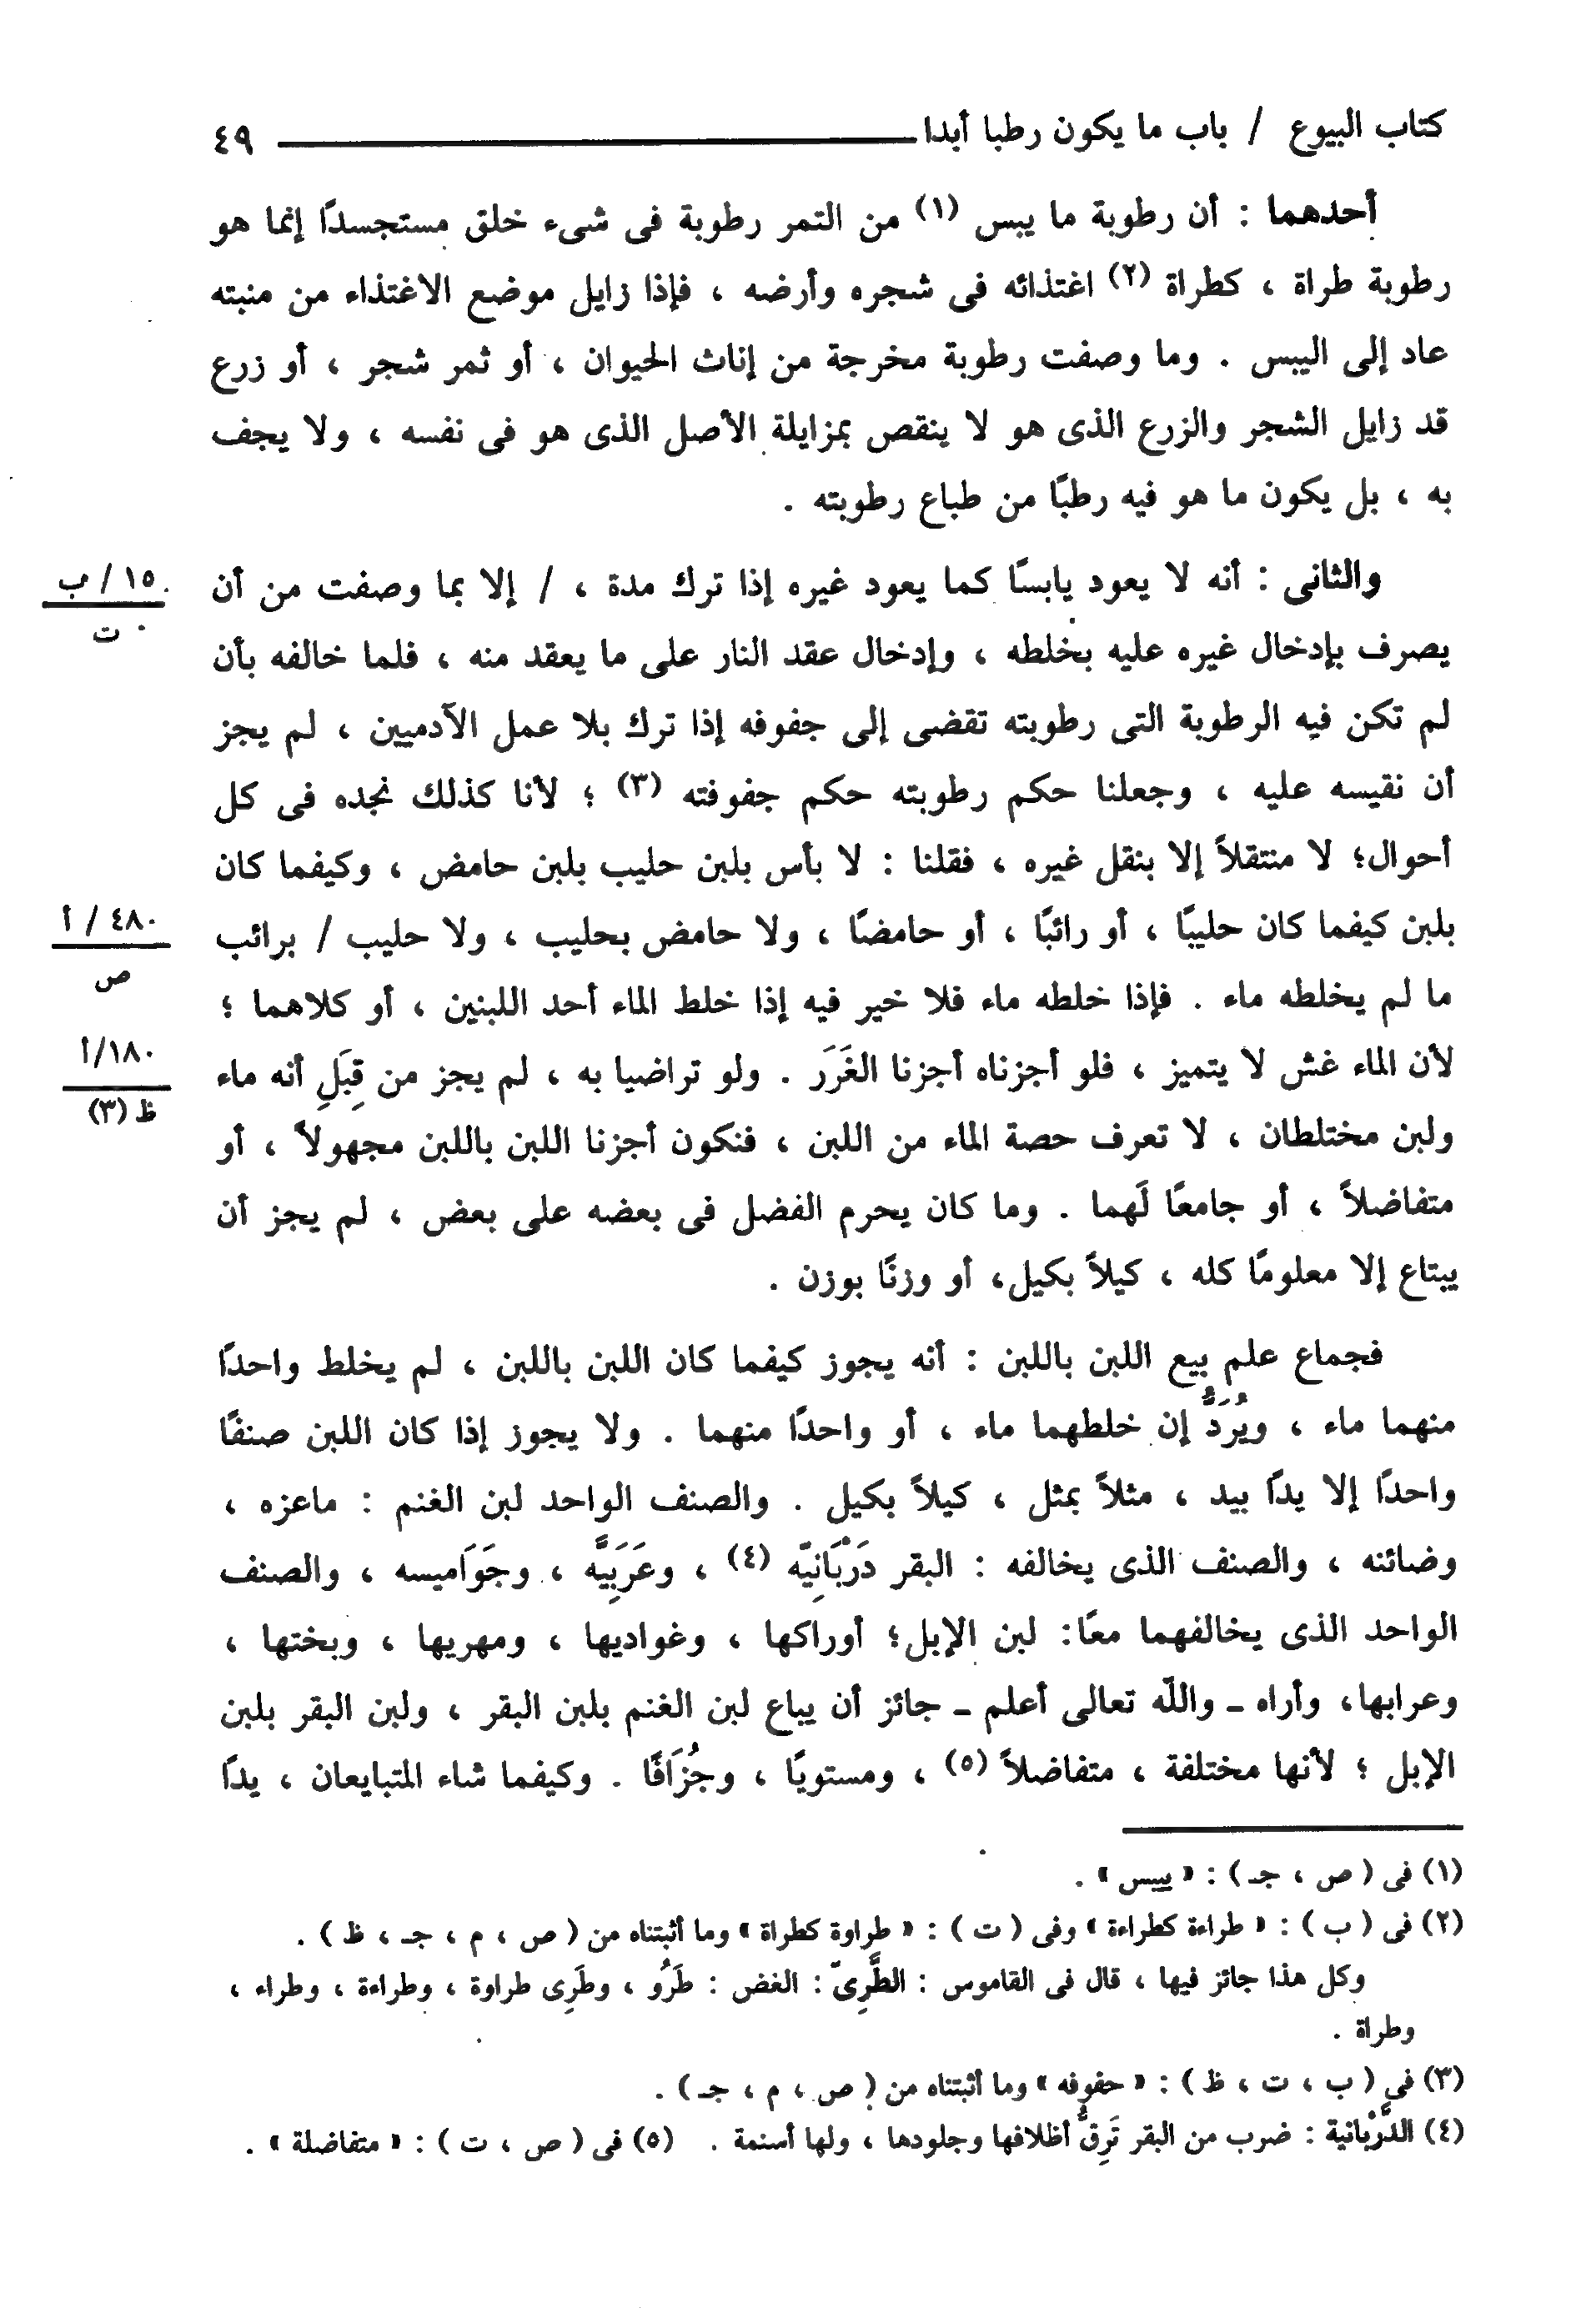 كتاب البيوع / باب ما يكون رطبا أبدا ٤٩
أحدهما : أن رطوبة ما يبس (١) من التمر رطوبة فى شىء خلق مستجسدًا إنما هو
رطوبة طراة ، كطراة (٢) اغتذائه فى شجره وأرضه ، فإذا زايل موضع الاغتذاء من منبته
عاد إلى اليبس . وما وصفت رطوبة مخرجة من إناث الحيوان ، أو ثمر شجر ، أو زرع
قد زايل الشجر والزرع الذى هو لا ينقص بمزايلة الأصل الذى هو فى نفسه ، ولا يجف
به ، بل يكون ما هو فيه رطبًا من طباع رطوبته .
والثانى : أنه لا يعود يابسًا كما يعود غيره إذا ترك مدة ، / إلا بما وصفت من أن
١٥ / ب
ت
يصرف بإدخال غيره عليه بخلطه ، وإدخال عقد النار على ما يعقد منه ، فلما خالفه بأن
لم تكن فيه الرطوبة التى رطوبته تقضى إلى جفوفه إذا ترك بلا عمل الآدميين ، لم يجز
أن نقيسه عليه ، وجعلنا حكم رطوبته حكم جفوفته (٣) ؛ لأنا كذلك نجده فى كل
أحوال؛ لا منتقلاً إلا بنقل غيره ، فقلنا : لا بأس بلبن حليب بلبن حامض ، وكيفما كان
بلبن كيفما كان حليبًا ، أو رائبًا ، أو حامضًا ، ولا حامض بحليب ، ولا حليب / برائب
٤٨٠ / أ
ص
ما لم يخلطه ماء . فإذا خلطه ماء فلا خير فيه إذا خلط الماء أحد اللبنين ، أو كلاهما ؛
لأن الماء غش لا يتميز ، فلو أجزناه أجزنا الغَرَرَ . ولو تراضيا به ، لم يجز من قِبَلِ أنه ماء
١٨٠/أ
ظ (٣)
ولبن مختلطان ، لا تعرف حصة الماء من اللبن ، فنكون أجزنا اللبن باللبن مجهولاً ، أو
متفاضلاً ، أو جامعًا لَهما . وما كان يحرم الفضل فى بعضه على بعض ، لم يجز أن
يبتاع إلا معلومًا كله ، كيلاً بكيل، أو وزنًا بوزن .
فجماع علم بيع اللبن باللبن : أنه يجوز كيفما كان اللبن باللبن ، لم يخلط واحدًا
منهما ماء ، ويُرَدُّ إن خلطهما ماء ، أو واحدًا منهما . ولا يجوز إذا كان اللبن صنفًا
واحدًا إلا يدًا بيد ، مثلاً بمثل ، كيلاً بكيل . والصنف الواحد لبن الغنم : ماعزه ،
وضائنه ، والصنف الذى يخالفه : البقر دَرْبَانِيّه (٤) ، وعَرَبِيَّه ، وجَوَاميسه ، والصنف
الواحد الذى يخالفهما معًا: لبن الإبل؛ أوراكها ، وغواديها ، ومهريها ، وبختها ،
وعرابها، وأراه ـ والله تعالى أعلم ـ جائز أن يباع لبن الغنم بلبن البقر ، ولبن البقر بلبن
الإبل ؛ لأنها مختلفة ، متفاضلاً (٥) ، ومستويًا ، وجُزَافًا . وكيفما شاء المتبايعان ، يدًا
(١) فى ( ص ، جـ ) : « ييبس » .
(٢) فى ( ب ) : « طراءة كطراءة » وفى ( ت ) : « طراوة كطراة » وما أثبتناه من ( ص ، م ، جـ ، ظ ) .
وكل هذا جائز فيها ، قال فى القاموس : الطَّرِىّ : الغض : طَرُو ، وطَرِى طراوة ، وطراءة ، وطراء ،
وطراة .
(٣) فى ( ب ، ت ، ظ ) : « حفوفه » وما أثبتناه من ( ص ، م ، جـ ) .
(٤) الدَّرْبانية : ضرب من البقر تَرِقُّ أظلافها وجلودها ، ولها أسنمة . (٥) فى ( ص ، ت ) : « متفاضلة » .